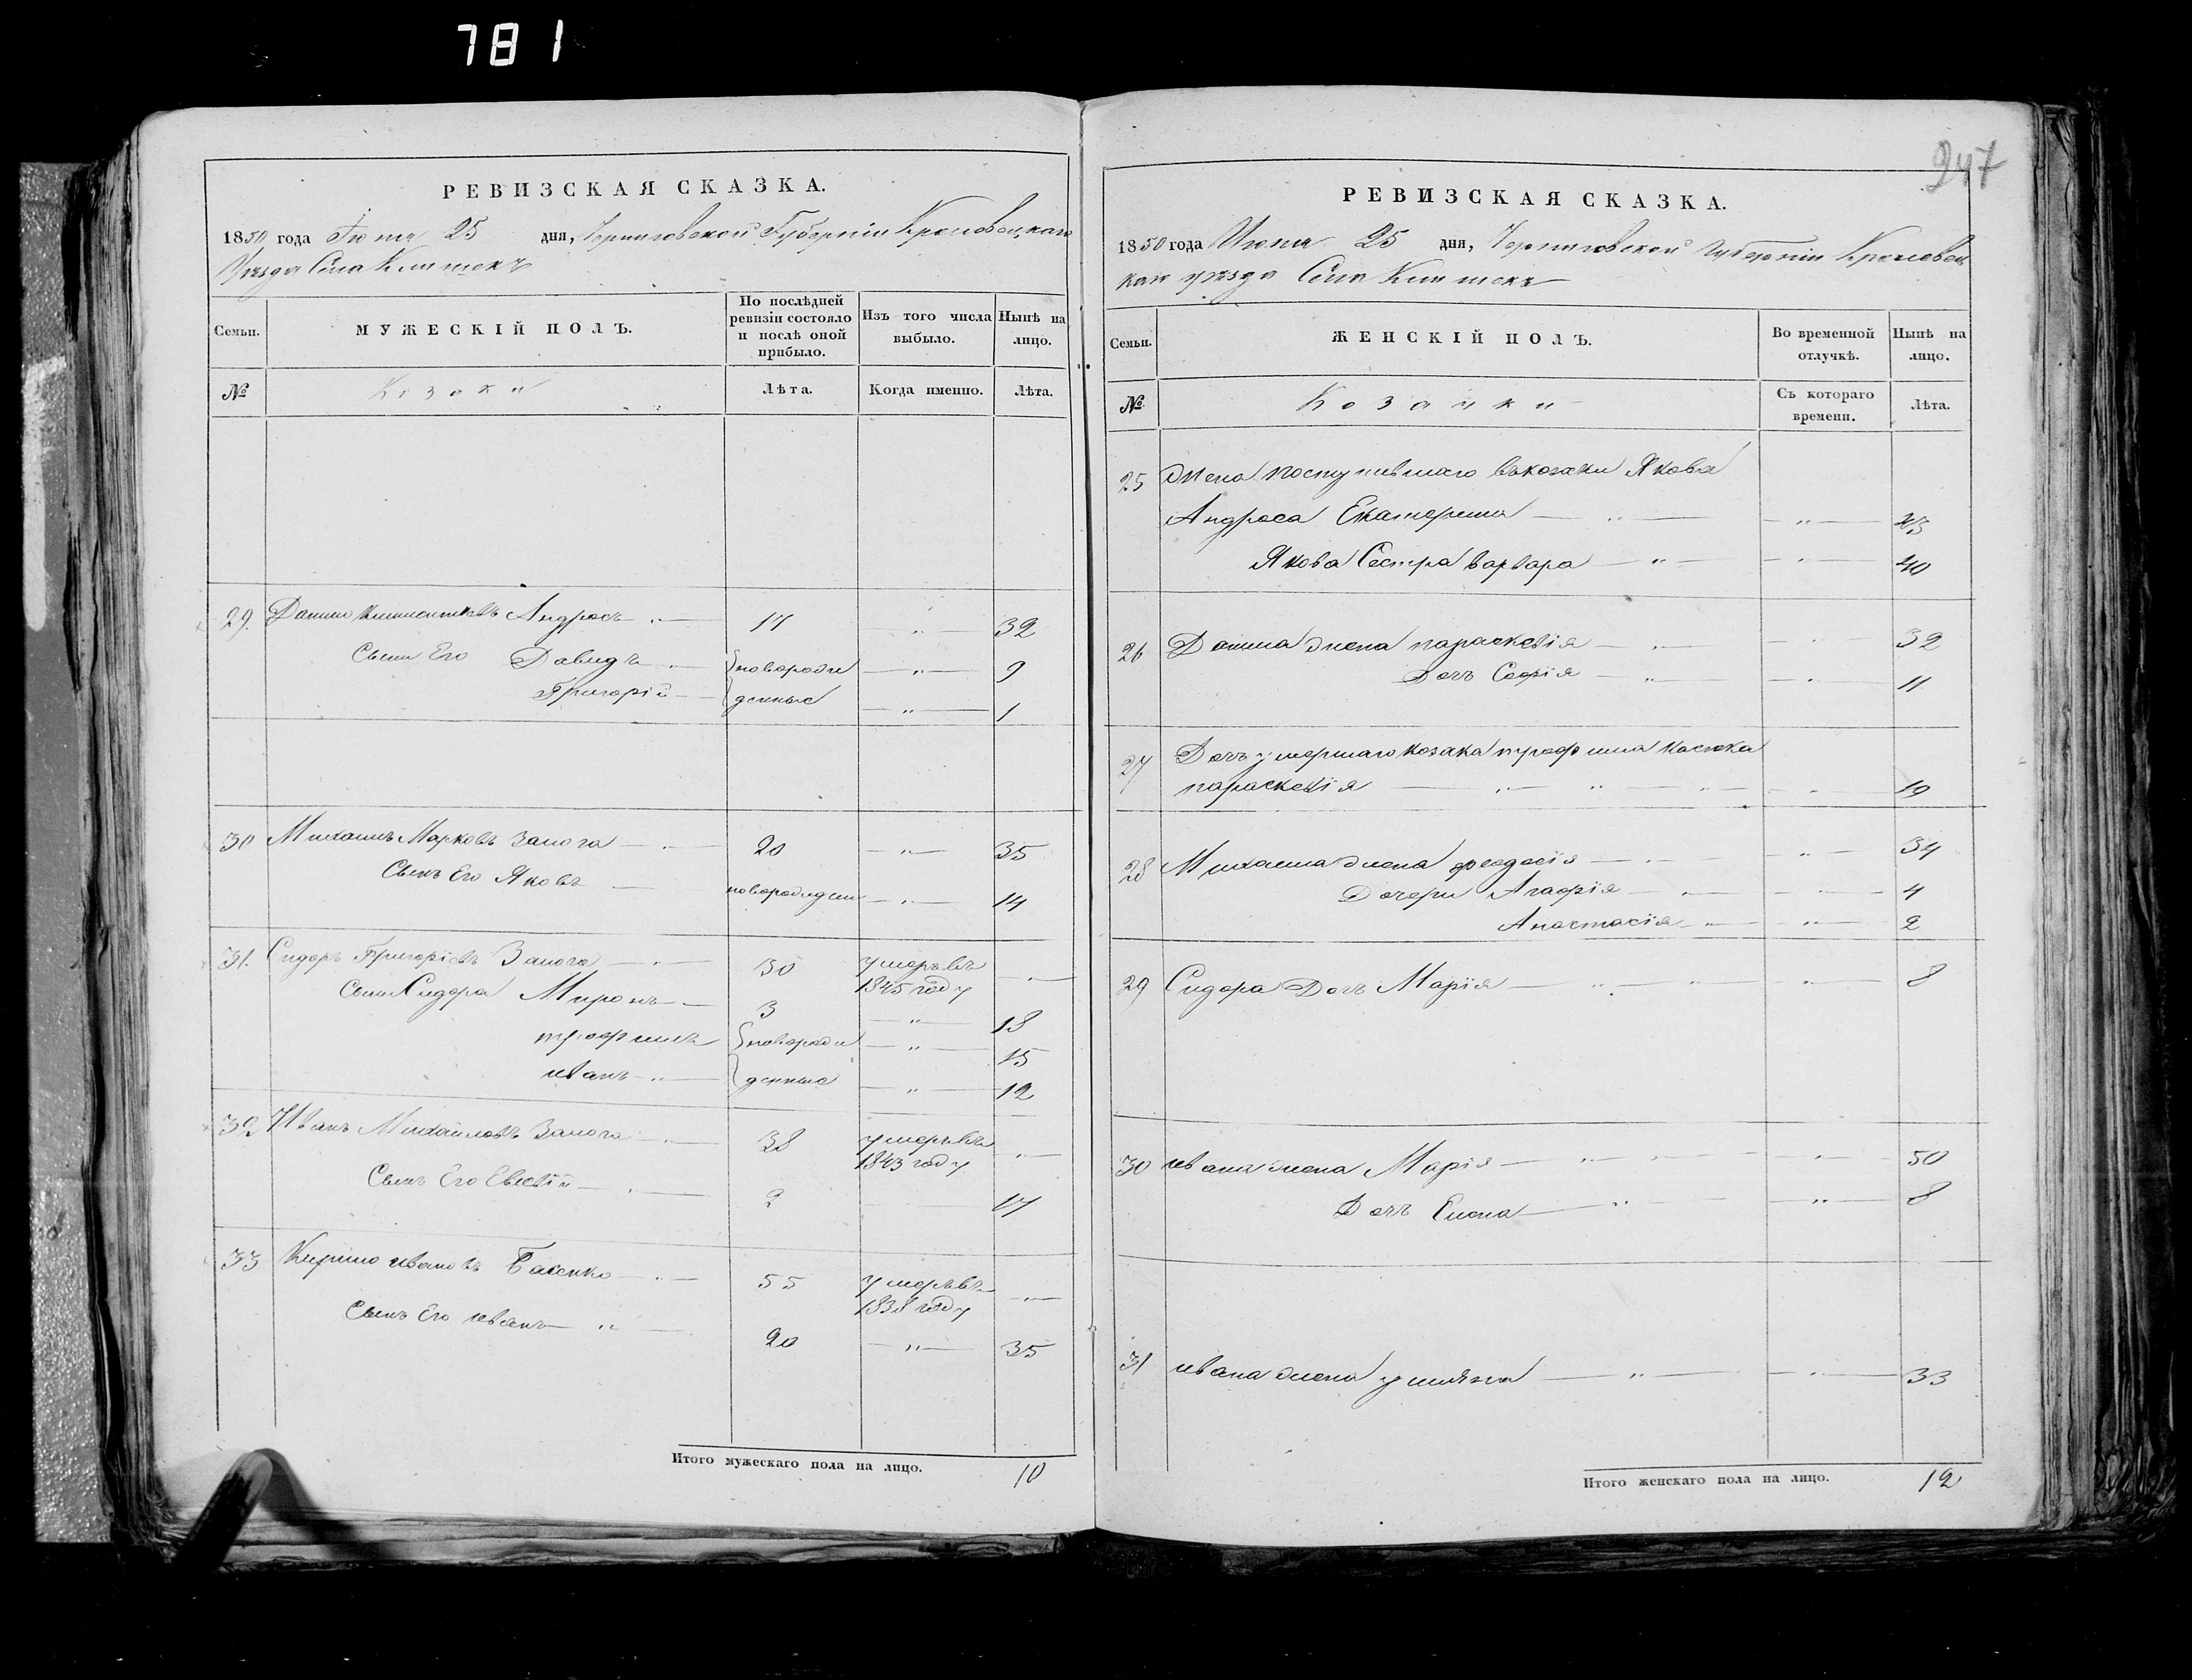 781
247
РЕВИЗСКАЯ СКАЗКА.
1850 года Іюня 25 дня, Черниговской Губерніи Кролевецкаго
Уѣзда Села Клишекъ
Семьи. МУЖЕСКІЙ ПОЛЪ. По послѣдней ревизіи состояло и послѣ оной прибыло. Изъ того числа выбыло. Нынѣ на лицо.
№ Козаки Лѣта. Когда именно. Лѣта.
29. Данило Климентіевъ Андросъ 17 32
Сыни Его Давидъ новорож 9
Григорій денные 1
30 Михаилъ Марковъ Замога 20 35
Сынъ Его Яковъ новорожден 14
31. Сидоръ Григоріевъ Замога 30 умеръ въ 1845 году
Сыни Сидора Миронъ 3 18
трофимъ новорож 15
иванъ денные 12
32 Иванъ Михайловъ Замога 38 умеръ въ 1843 году
Сынъ Его Евсевій 2 17
33 Кирило ивановъ 55 умеръ въ 1838 году
Сынъ Его иванъ 20 35
Итого мужескаго пола на лицо. 10
РЕВИЗСКАЯ СКАЗКА.
1850 года Июня 25 дня, Черниговской Губерніи Кролевец
каго уѣзда Села Клишекъ
Семьи. ЖЕНСКІЙ ПОЛЪ. Во временной отлучкѣ. Нынѣ на лицо.
№ Козачки Съ котораго времени. Лѣта.
25 жена поступившаго въ козаки Якова
Андроса Екатерина 43
Якова Сестра варвара 40
26 Данила жена параскевія 32
Дочь Софія 11
27 Дочь умершаго козака трофима Касюка
параскевія 19
28 Михаила жена феодосія 34
Дочери Агафія 4
Анастасія 2
29 Сидора Дочь Марія 8
30 ивана жена Марія 50
Дочь Елена 8
31 ивана жена уліяна 33
Итого женскаго пола на лицо. 12